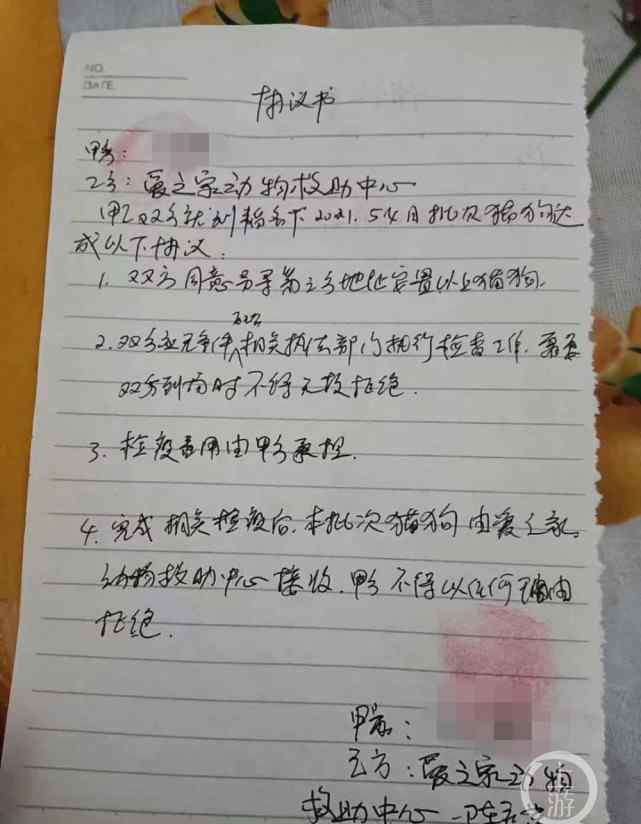 NO.
DATE
协议书
甲方:
乙方:爱之家动物救助中心
甲乙双方就 2021.5 月批次猫狗达
成以下协议:
1. 双方同意另寻第三方地址安置以上猫狗.
2.双方应 配合 相关执法部门执行检查工作.需要
双方到场时不得无故拒绝.
3. 检疫费用由甲方承担.
4. 完成相关检疫后.本批次猫狗由爱之家
动物救助中心接收.甲方不得以任何理由
拒绝.
甲方:
乙方:爱之家动物
救助中心
游